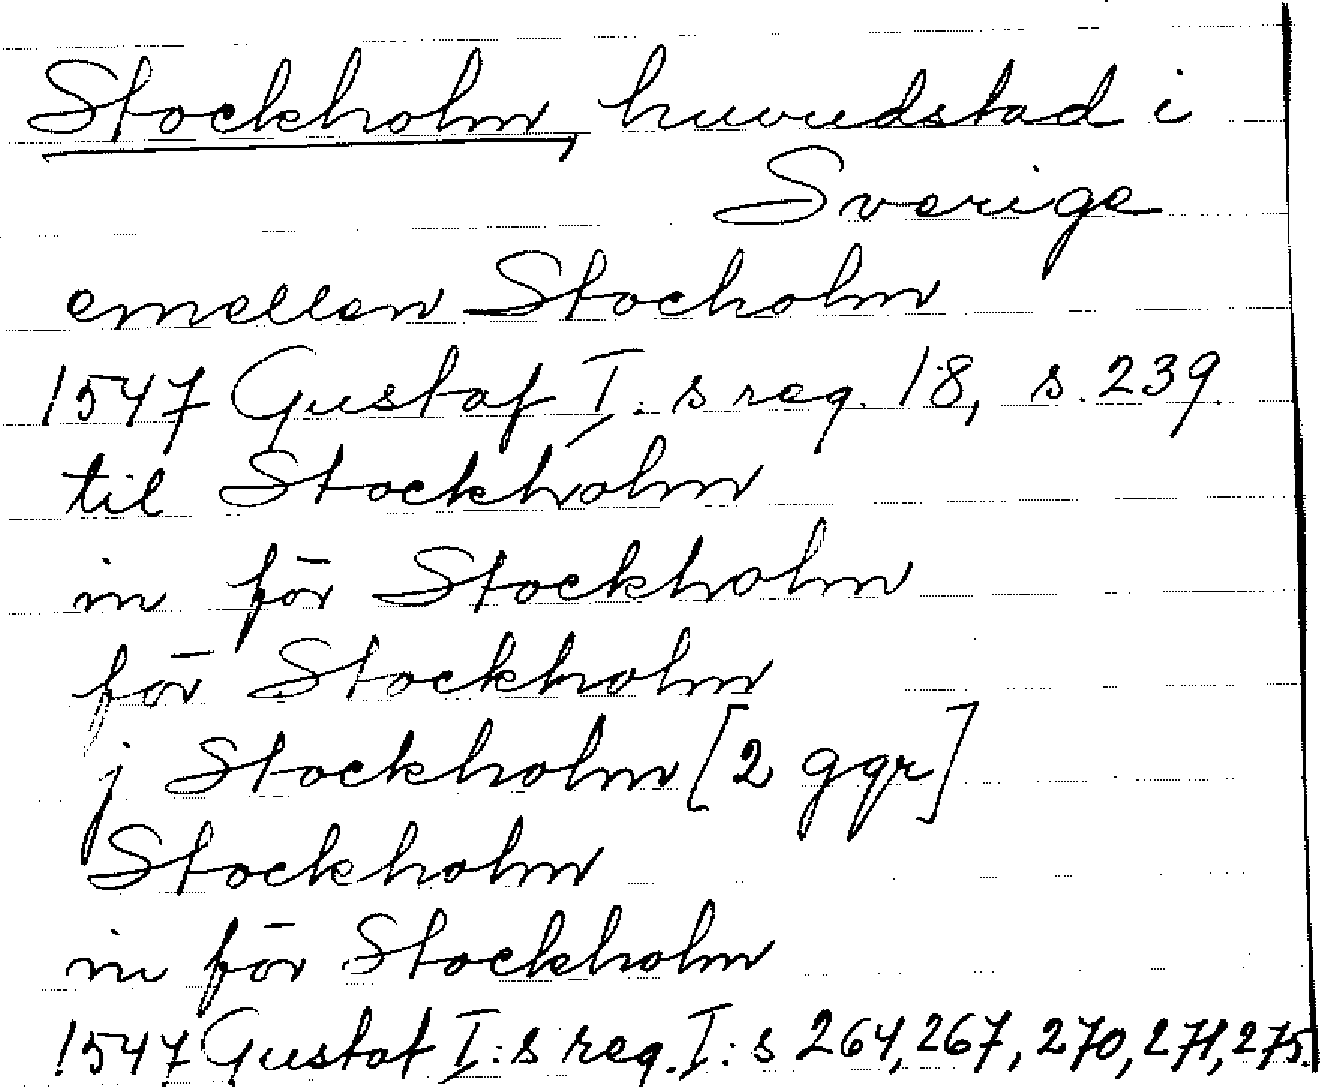 Stockholm, huvudstad i
Sverige
emellan Stocholm
1547 Gustaf I:s reg. 18, s. 239.
til Stockholm
in för Stockholm
för Stockholm
j Stockholm [2 ggr]
Stockholm
in för Stockholm
1547 Gustaf I:s reg. I: s 264, 267, 270, 271, 275.